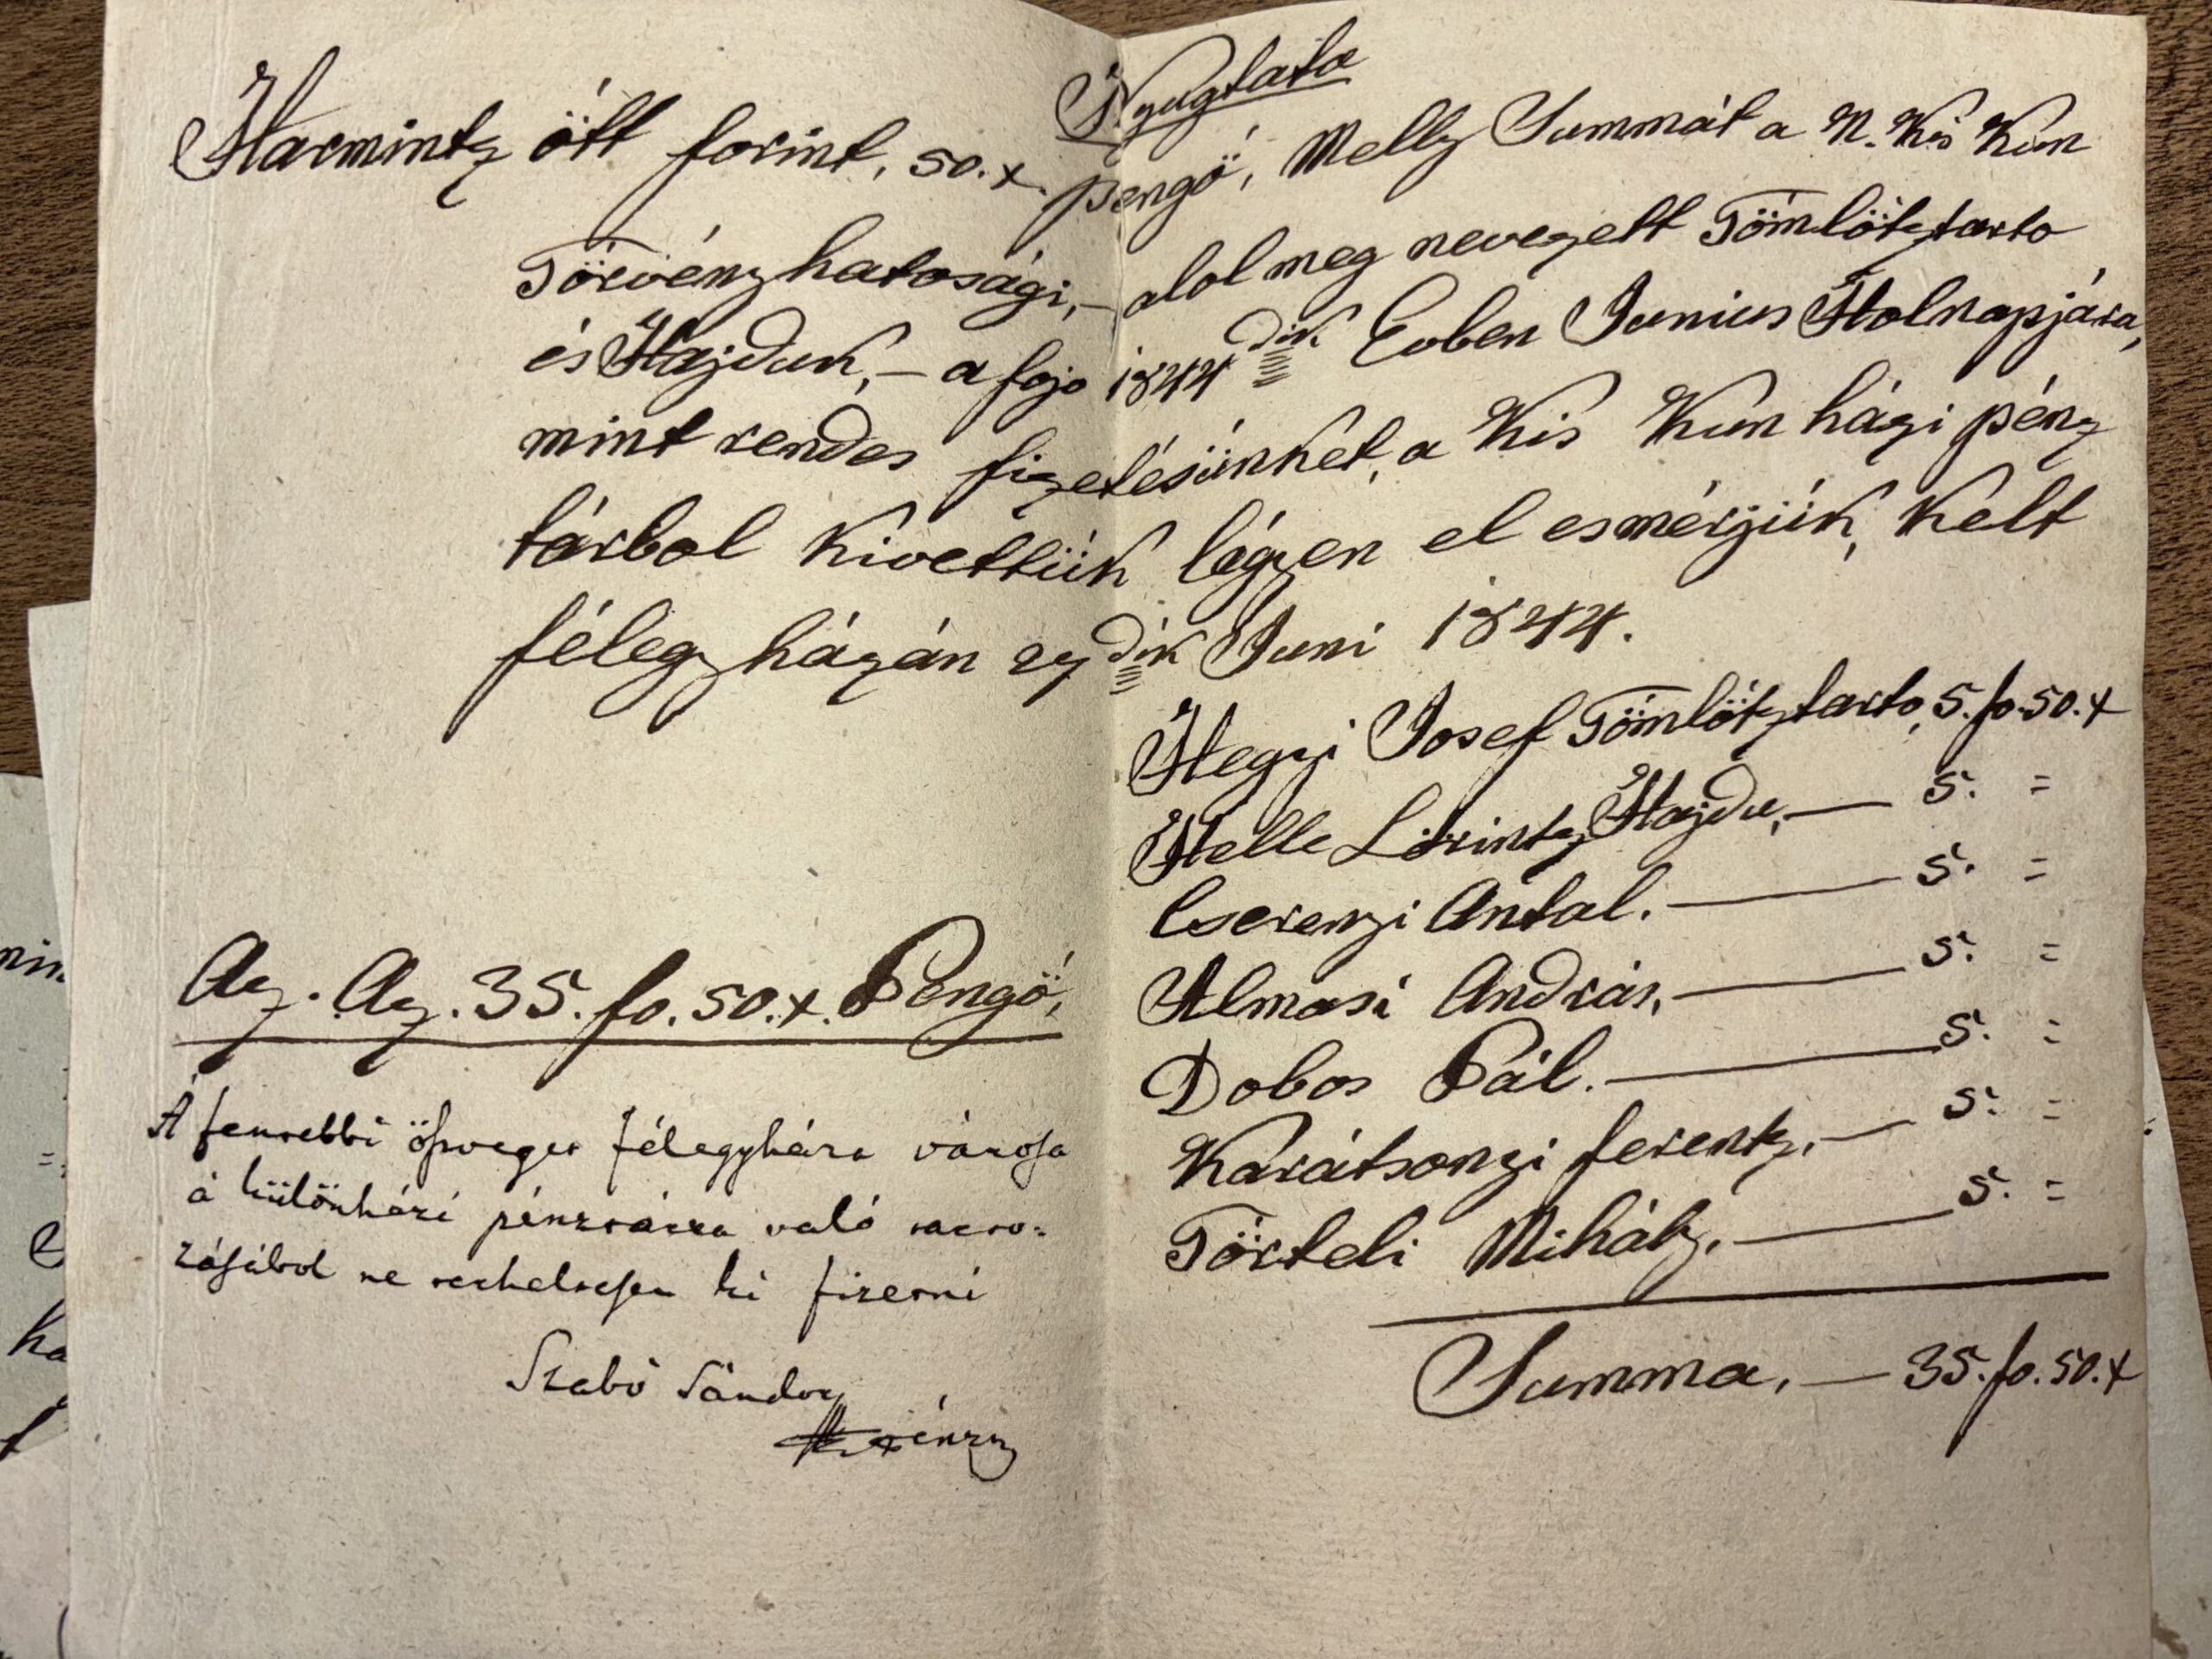 Nyugtato
Harmintz ött forint, 50.x. pengö, Melly Summát a N. Kis Kun
Törvényhatosági, – alol meg nevezett Tömlötztarto
és Hajduk, – a fojo 1844dik Évben Junius Holnapjára,
mint rendes fizetésünket, a Kis Kun házi pénz
tárbol kivettük légyen el esmérjük, Kelt
félegyházán 2dik Juni 1844.
Hegyi Josef Tömlötztarto, 5. fo. 50. x
Helle Lörintz Hajdu, — 5. =
Cserenyi Antal. — 5. =
Almasi András, — 5. =
Dobos Pál. — 5. =
Karátsonyi ferentz, — 5. =
Törteli Mihály, — 5. =
Summa, — 35. fo. 50. x
Az. Az. 35. fo. 50. x. Pengö,
A fenntebbi öszveget félegyháza városa
a különházi pénztárra való tarto=
zásábol ne terheltessen ki fizetni
Szabó Sándor